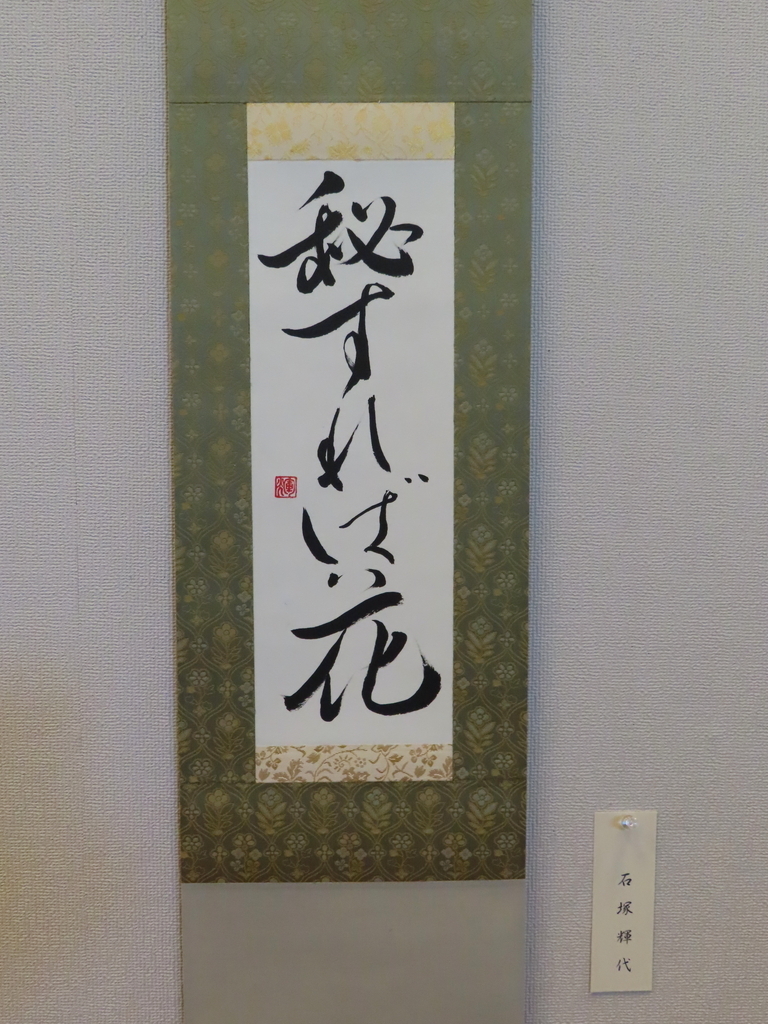 秘すれば花
輝
石塚輝代